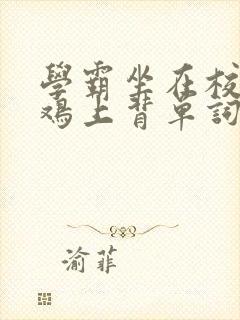 學霸坐在校
鸡上背單詞
渝菲